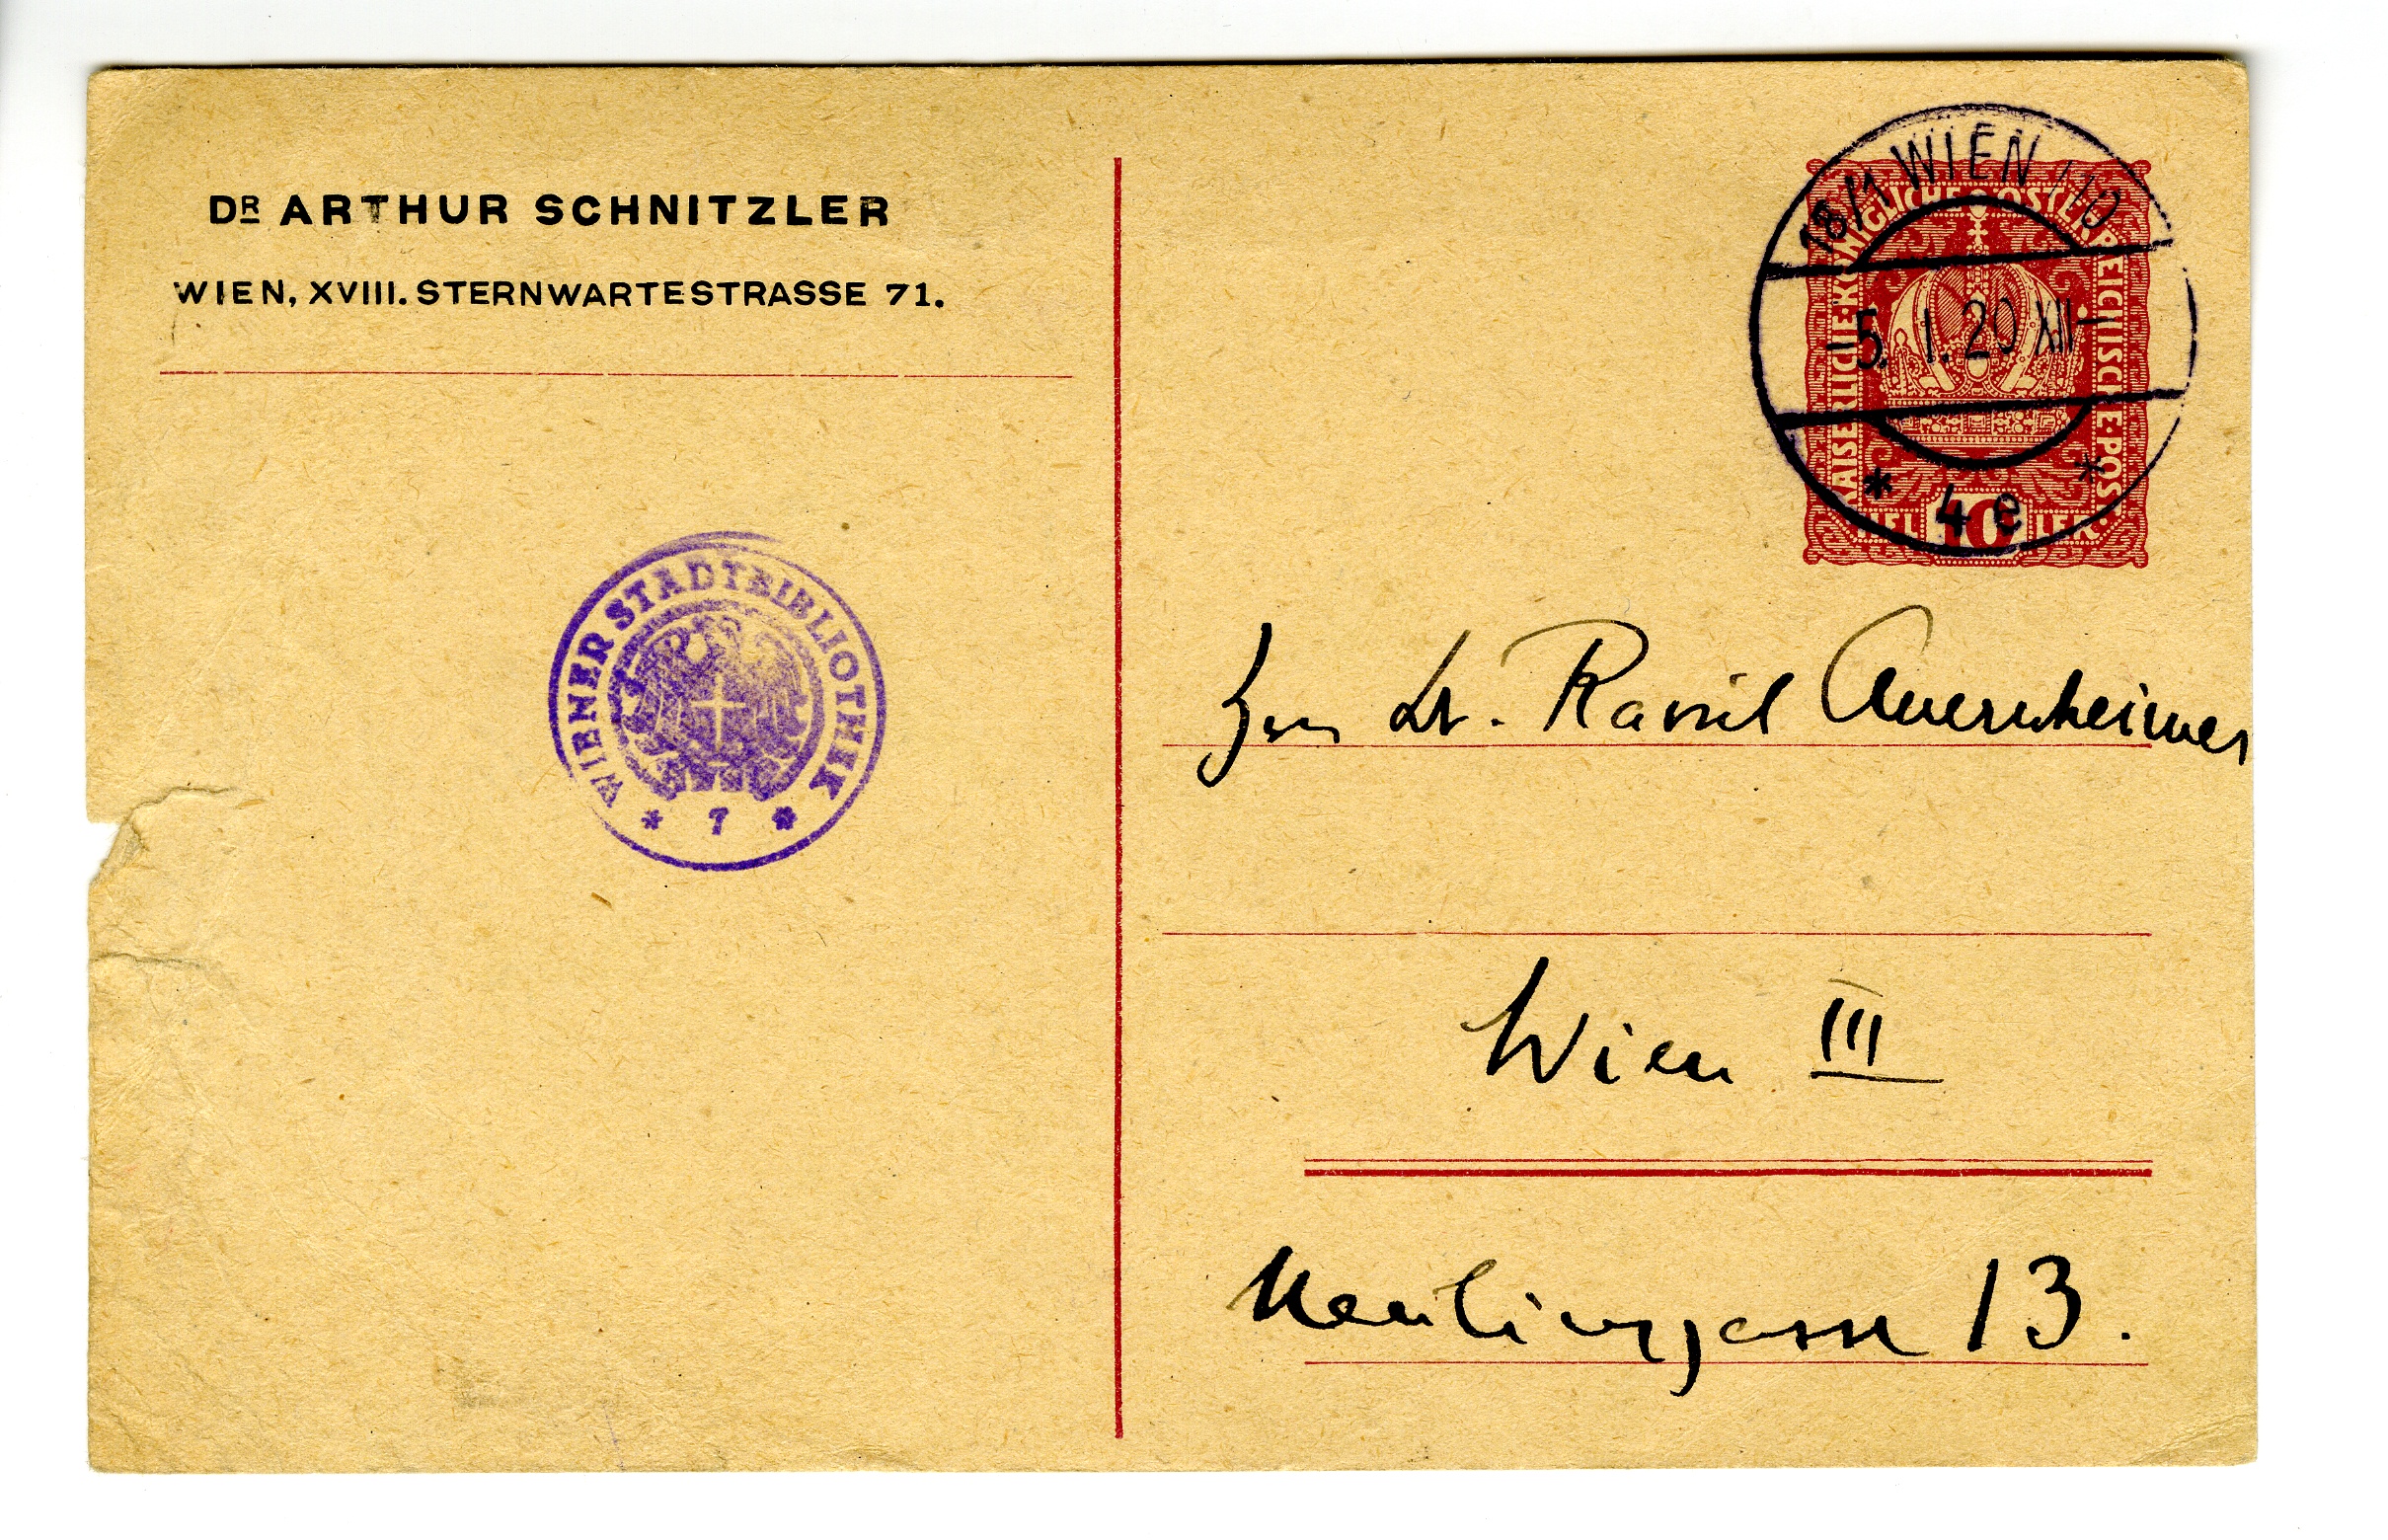 DR ARTHUR SCHNITZLER
WIEN, XVIII. STERNWARTESTRASSE 71.
18/1 WIEN 110
5. I. 20 XII-
* 4e *
KAISERLICHE·KÖNIGLICHE·ÖSTERREICHISCHE·POST·
10 HELLER
WIENER STADTBIBLIOTHEK
* 7 *
Hrn Dr. Raoul Auernheimer
Wien III
Neulinggasse 13.